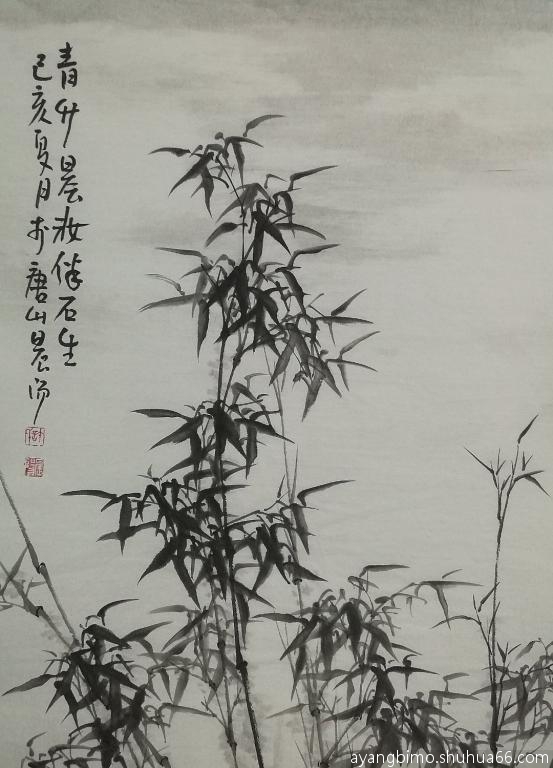 青竹晨妆伴石生
己亥夏月於唐山晨汤
ayangbimo.shuhua66.com